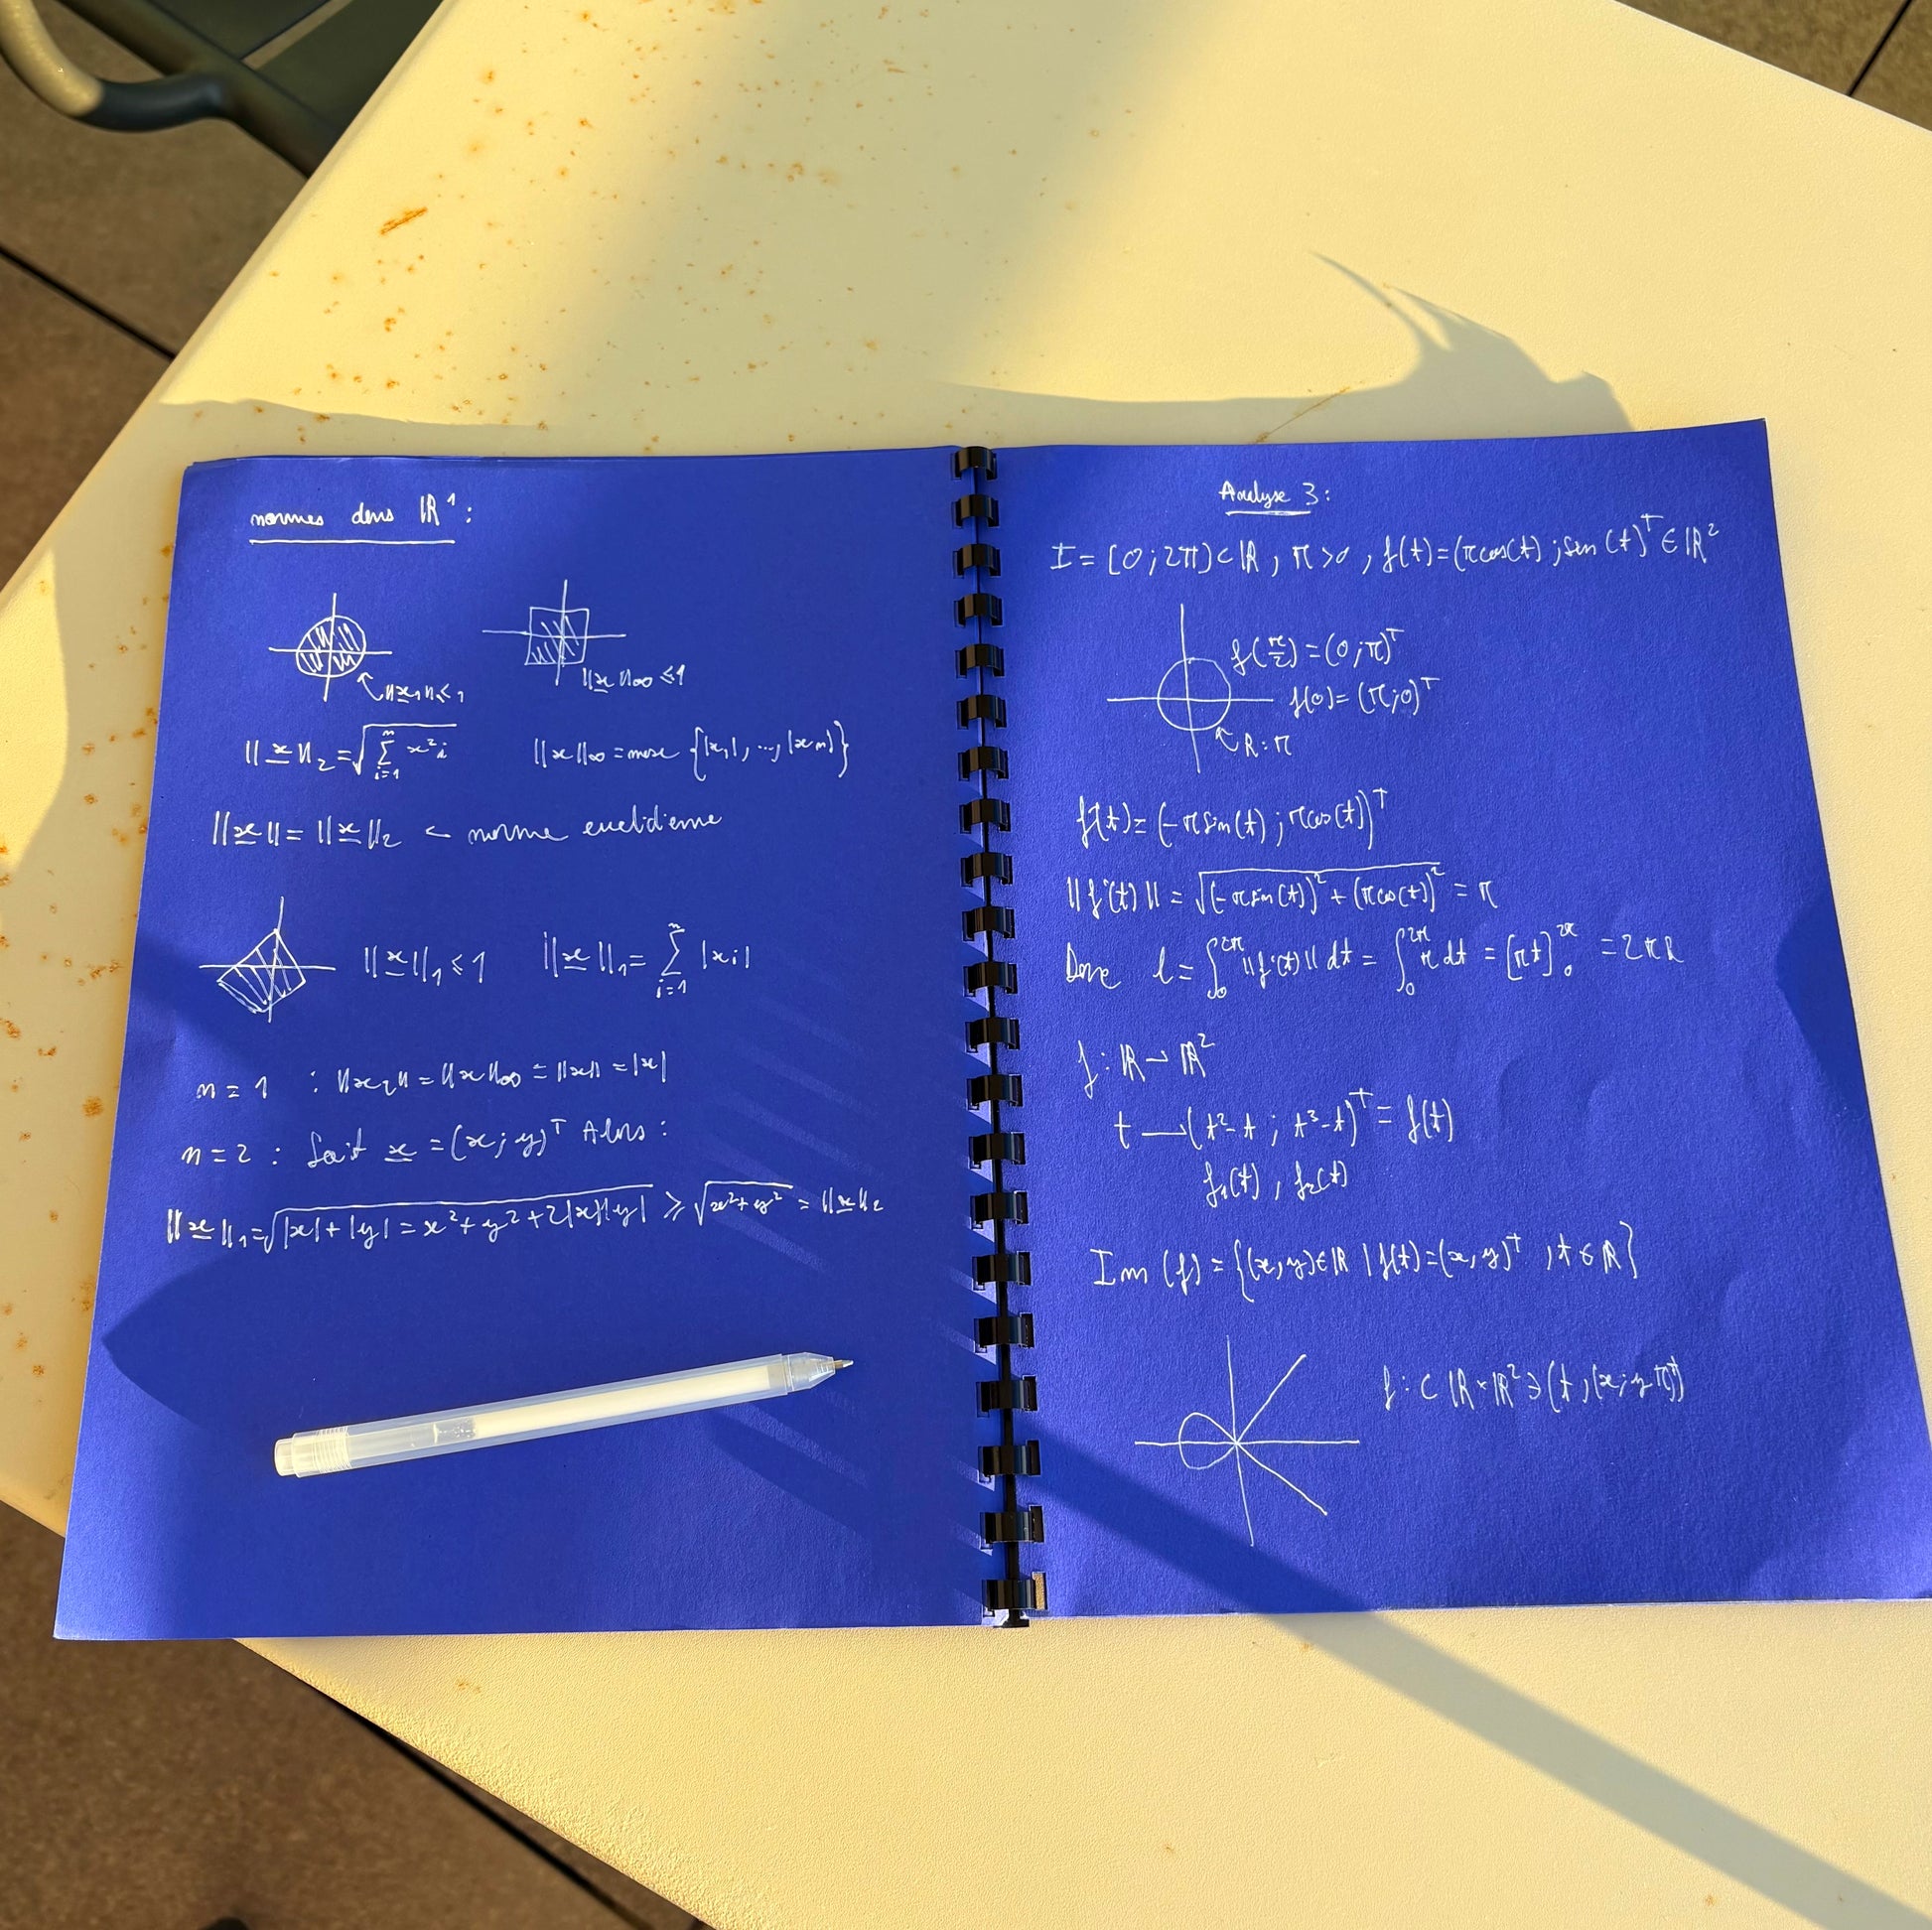 normes dans ℝ¹ :
‖x₁‖₂ ≤ 1
‖x‖∞ ≤ 1
‖x‖₂ = √(∑ᵢ₌₁ⁿ x²i)
‖x‖∞ = max {|x₁|, ..., |xn|}
‖x‖ = ‖x‖₂ ← norme euclidienne
‖x‖₁ ≤ 1
‖x‖₁ = ∑ᵢ₌₁ⁿ |xi|
n = 1 : ‖x₂‖ = ‖x‖∞ = ‖x‖ = |x|
n = 2 : Soit x = (x ; y)ᵀ Alors :
‖x‖₁ = √(|x| + |y| = x² + y² + 2|x||y|) ≥ √(x² + y²) = ‖x‖₂
Analyse 3 :
I = [0 ; 2π) ⊂ ℝ, π > 0, f(t) = (π cos(t) ; sin(t)ᵀ ∈ ℝ²
f(π/2) = (0 ; π)ᵀ
f(0) = (π ; 0)ᵀ
R : π
f'(t) = (-π sin(t) ; π cos(t))ᵀ
‖f'(t)‖ = √((-π sin(t))² + (π cos(t))²) = π
Donc l = ∫₀^2π ‖f'(t)‖ dt = ∫₀^2π π dt = [πt]₀^2π = 2πR
f : ℝ → ℝ²
t → (t² - t ; t³ - t)ᵀ = f(t)
f₁(t), f₂(t)
Im (f) = {(x, y) ∈ ℝ | f(t) = (x, y)ᵀ, t ∈ ℝ}
f : ⊂ ℝ × ℝ² ∋ (t, (x ; y